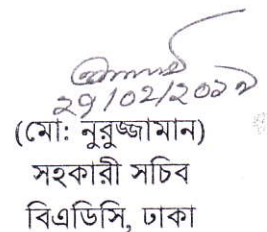 ২৭/০২/২০১৭
(মো: নুরুজ্জামান)
সহকারী সচিব
বিএডিসি, ঢাকা